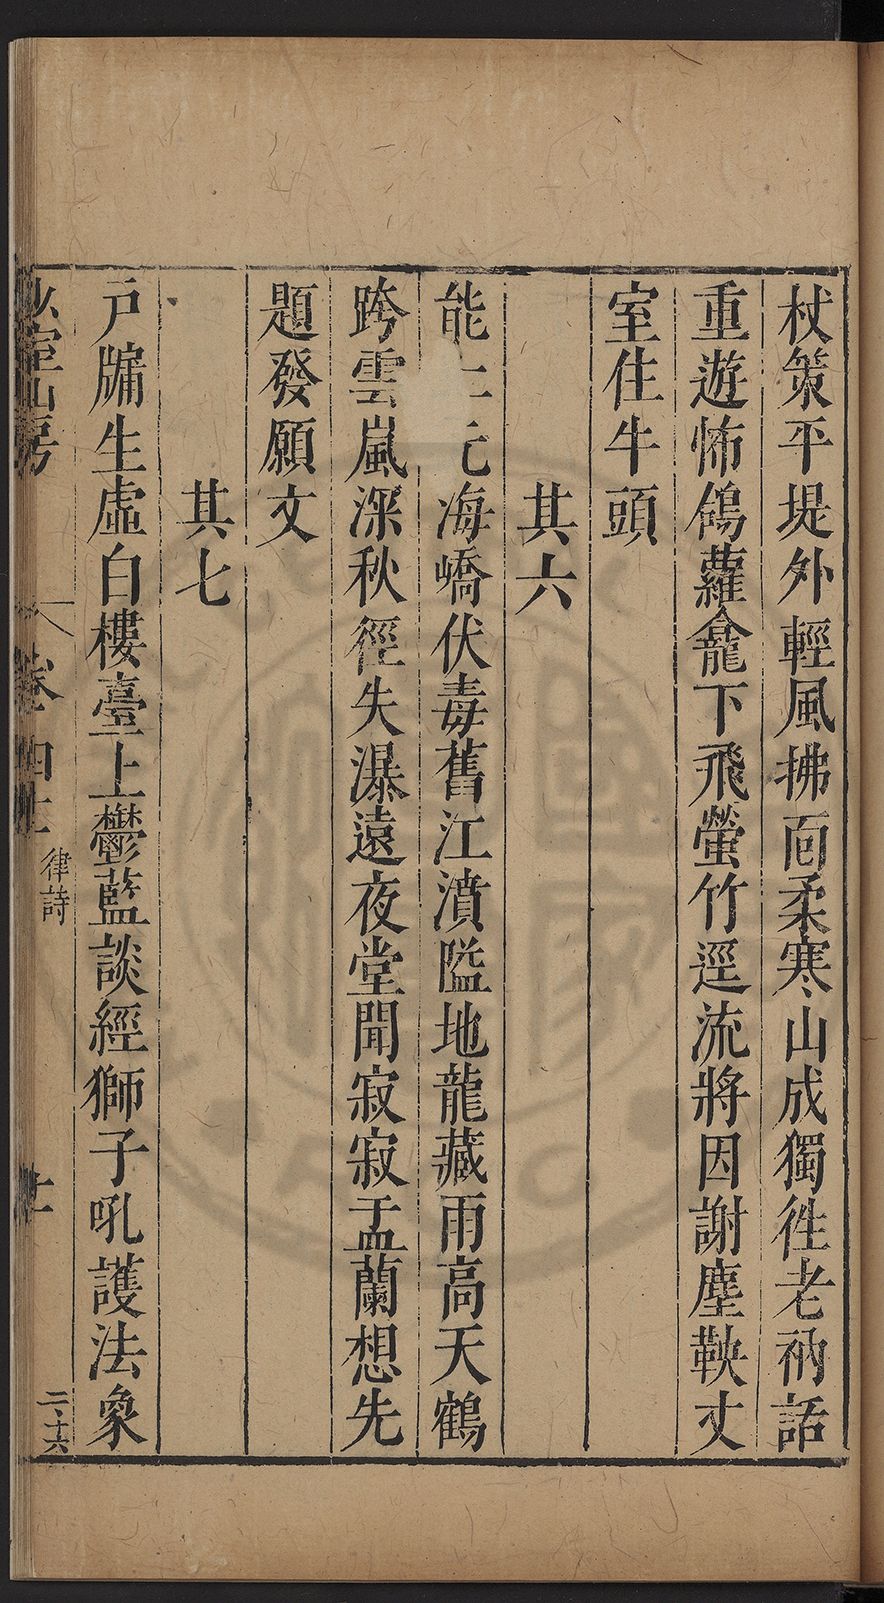 杖策平堤外輕風拂面柔寒山成獨徃老衲話
重遊怖鴿蘿龕下飛螢竹逕流將因謝塵鞅丈
室住牛頭
其六
能海嶠伏毒舊江濆隘地龍藏雨高天鶴
跨雲嵐深秋徑失瀑遠夜堂聞寂寂盂蘭想先
題發願文
其七
戶牖生虛白樓臺上鬱藍談經獅子吼護法象
室山房
卷四十
律詩
二十六